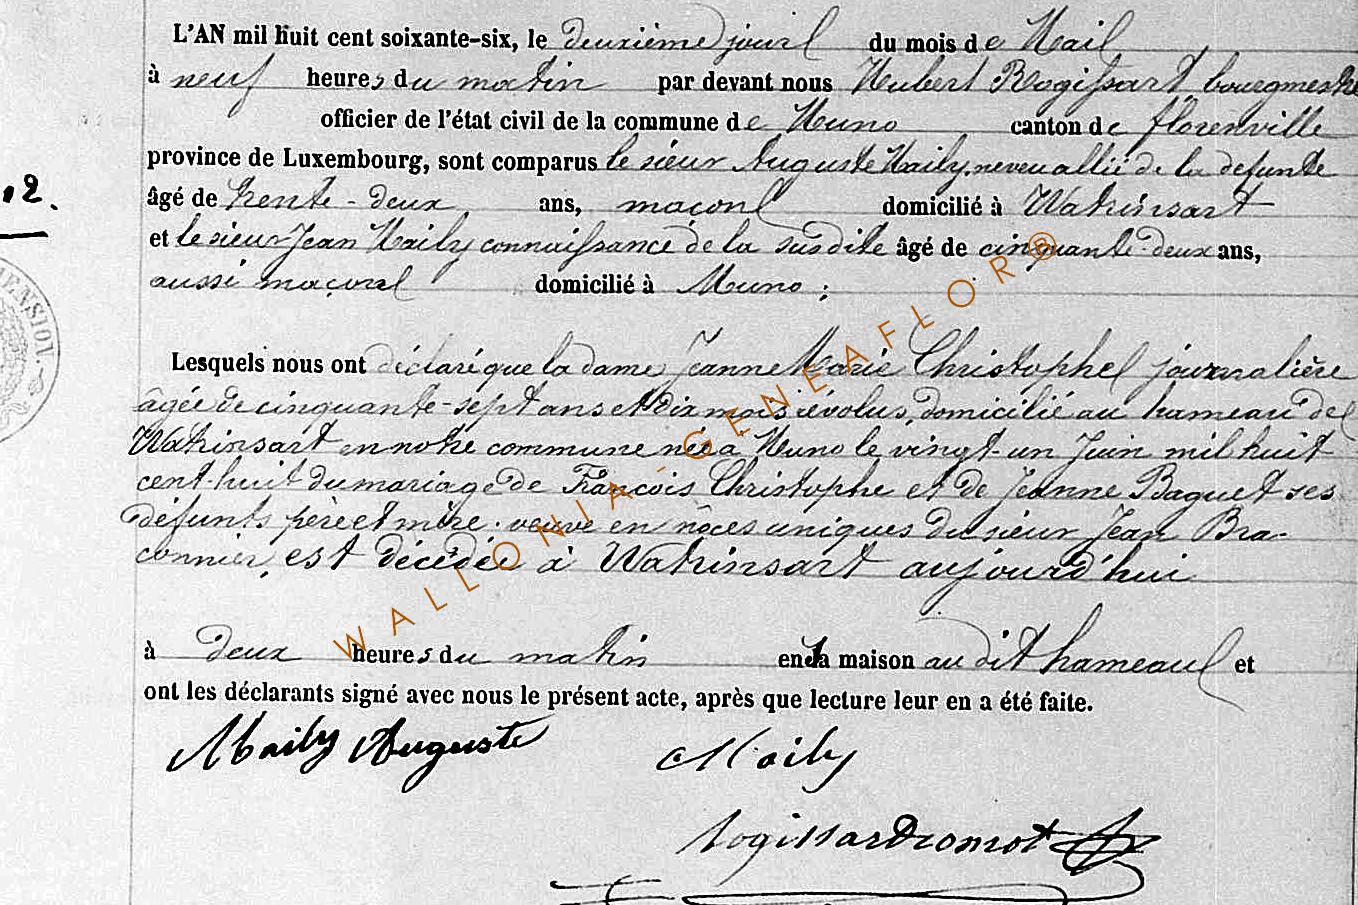 L'AN mil huit cent soixante-six, le deuxième jour du mois de Mai
à neuf heures du matin par devant nous Hubert Rogissart bourgmestre
officier de l'état civil de la commune de Muno canton de florenville
province de Luxembourg, sont comparus le sieur Auguste Maily, neveu allié de la défunte
12.
âgé de trente-deux ans, maçon domicilié à Watrinsart
et le sieur Jean Maily connaissance de la susdite âgé de cinquante-deux ans,
aussi maçon domicilié à Muno ;
Lesquels nous ont déclaré que la dame Jeanne Marie Christophe journalière
âgée de cinquante-sept ans et dix mois évolus, domicilié au hameau de
Watrinsart en notre commune née à Muno le vingt-un Juin mil huit
cent-huit du mariage de François Christophe et de Jeanne Baquet ses
défunts père et mère. veuve en nôces uniques du sieur Jean Bra-
connier, est décédée à Watrinsart aujourd'hui
à deux heures du matin en la maison au dit hameau et
ont les déclarants signé avec nous le présent acte, après que lecture leur en a été faite.
Maily Auguste Maily
WALLONIA-GENEAFLOR®